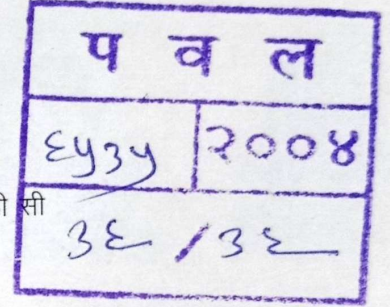 प व ल
६५३५ २००४
ी सी
३६ / ३६